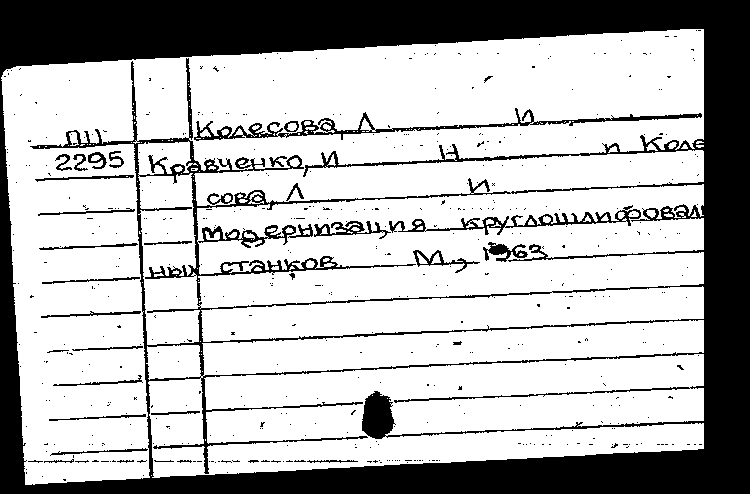 Колесова, Л И
ПП
2295 Кравченко, И Н и Коле
сова, Л И
Модернизация круглошлифоваль
ных станков М., 1963